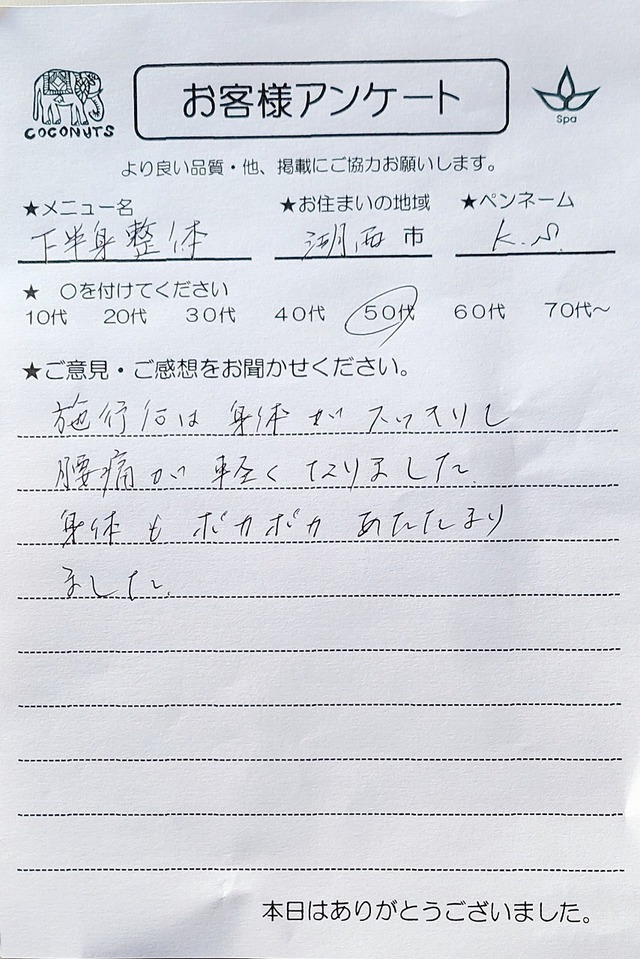 COCONUTS
お客様アンケート
Spa
より良い品質・他、掲載にご協力お願いします。
★メニュー名 ★お住まいの地域 ★ペンネーム
下半身整体 湖西市 K.S.
★ ○を付けてください
10代 20代 30代 40代 50代 60代 70代～
★ご意見・ご感想をお聞かせください。
施術后は身体がスッキリし
腰痛が軽くなりました
身体もポカポカあたたまり
ました.
本日はありがとうございました。